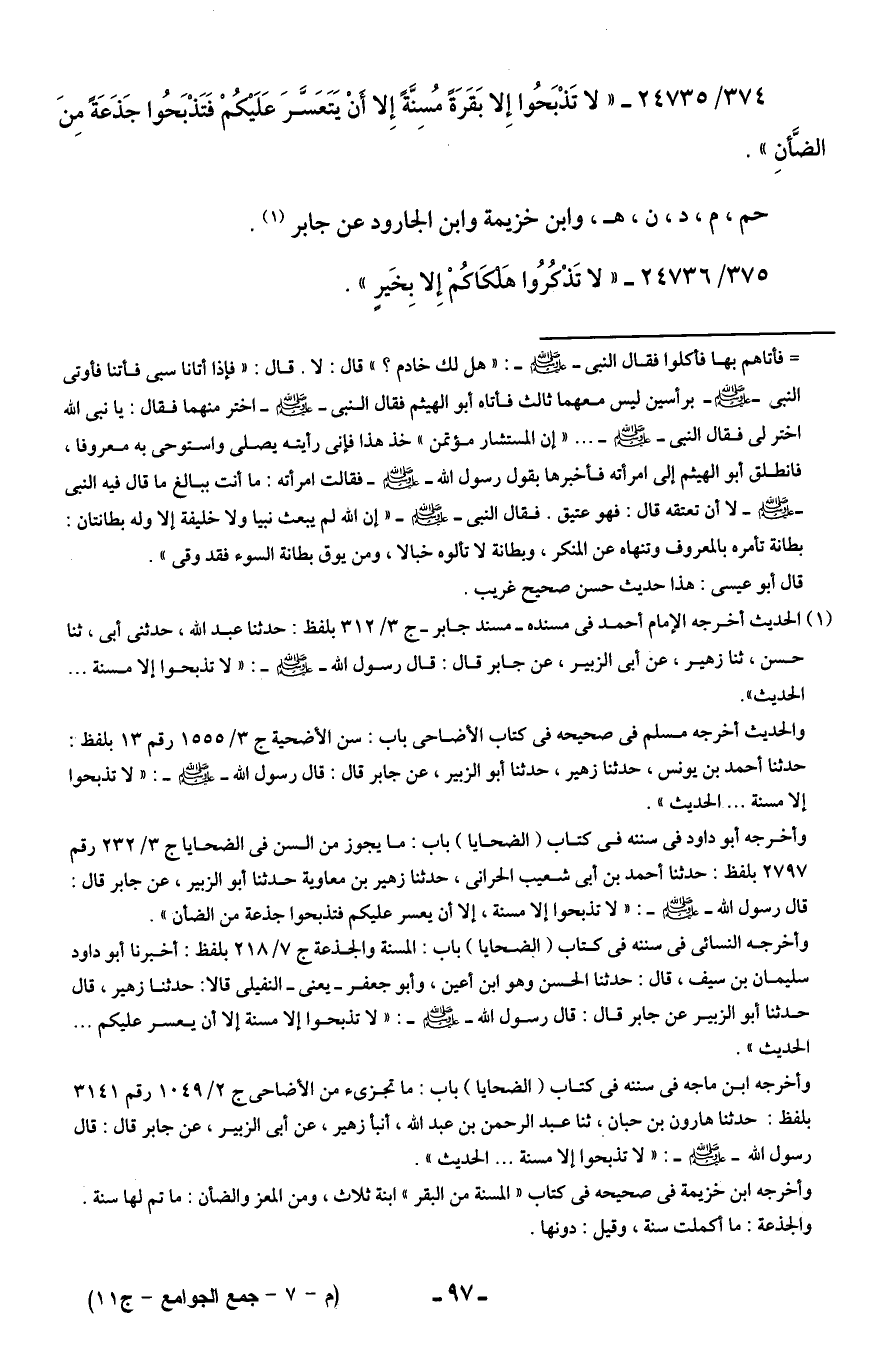 ٣٧٤/ ٢٤٧٣٥ ـ « لا تَذْبَحُوا إلا بَقَرَةً مُسِنَّةً إلا أنْ يَتَعَسَّرَ عَلَيْكُمْ فَتَذْبَحُوا جَذَعَةً مِنَ
الضَّأنِ » .
حم ، م ، د ، ن ، هـ ، وابن خزيمة وابن الجارود عن جابر (١) .
٣٧٥/ ٢٤٧٣٦ ـ « لا تَذْكُرُوا هَلْكَاكُمْ إلا بِخَيرٍ » .
= فأتاهم بها فأكلوا فقال النبى ـ ﷺ ـ : « هل لك خادم ؟ » قال : لا . قال : « فإذا أتانا سبى فأتنا فأوتى
النبى ـ ﷺ ـ برأسين ليس معهما ثالث فأتاه أبو الهيثم فقال النبى ـ ﷺ ـ اختر منهما فقال : يا نبى الله
اختر لى فقال النبى ـ ﷺ ـ ... « إن المستشار مؤتمن » خذ هذا فإنى رأيته يصلى واستوحى به معروفا ،
فانطلق أبو الهيثم إلى امرأته فأخبرها بقول رسول الله ـ ﷺ ـ فقالت امرأته : ما أنت ببالغ ما قال فيه النبى
ـ ﷺ ـ لا أن تعتقه قال : فهو عتيق . فقال النبى ـ ﷺ ـ « إن الله لم يبعث نبيا ولا خليفة إلا وله بطانتان :
بطانة تأمره بالمعروف وتنهاه عن المنكر ، وبطانة لا تألوه خبالا ، ومن يوق بطانة السوء فقد وقى » .
قال أبو عيسى : هذا حديث حسن صحيح غريب .
(١) الحديث أخرجه الإمام أحمد فى مسنده ـ مسند جابر ـ ج ٣/ ٣١٢ بلفظ : حدثنا عبد الله ، حدثنى أبى ، ثنا
حسن ، ثنا زهير ، عن أبى الزبير ، عن جابر قال : قال رسول الله ـ ﷺ ـ : « لا تذبحوا إلا مسنة ...
الحديث».
والحديث أخرجه مسلم فى صحيحه فى كتاب الأضاحى باب : سن الأضحية ج ٣/ ١٥٥٥ رقم ١٣ بلفظ :
حدثنا أحمد بن يونس ، حدثنا زهير ، حدثنا أبو الزبير ، عن جابر قال : قال رسول الله ـ ﷺ ـ : « لا تذبحوا
إلا مسنة ... الحديث » .
وأخرجه أبو داود فى سننه فى كتاب ( الضحايا ) باب : ما يجوز من السن فى الضحايا ج ٣/ ٢٣٢ رقم
٢٧٩٧ بلفظ : حدثنا أحمد بن أبى شعيب الحرانى ، حدثنا زهير بن معاوية حدثنا أبو الزبير ، عن جابر قال :
قال رسول الله ـ ﷺ ـ : « لا تذبحوا إلا مسنة ، إلا أن يعسر عليكم فتذبحوا جذعة من الضأن » .
وأخرجه النسائى فى سننه فى كتاب ( الضحايا ) باب : المسنة والجذعة ج ٧/ ٢١٨ بلفظ : أخبرنا أبو داود
سليمان بن سيف ، قال : حدثنا الحسن وهو ابن أعين ، وأبو جعفر ـ يعنى ـ النفيلى قالا: حدثنا زهير ، قال
حدثنا أبو الزبير عن جابر قال : قال رسول الله ـ ﷺ ـ : « لا تذبحوا إلا مسنة إلا أن يعسر عليكم ...
الحديث » .
وأخرجه ابن ماجه فى سننه فى كتاب ( الضحايا ) باب : ما تجزىء من الأضاحى ج ٢/ ١٠٤٩ رقم ٣١٤١
بلفظ : حدثنا هارون بن حبان ، ثنا عبد الرحمن بن عبد الله ، أنبأ زهير ، عن أبى الزبير ، عن جابر قال : قال
رسول الله ـ ﷺ ـ : « لا تذبحوا إلا مسنة ... الحديث » .
وأخرجه ابن خزيمة فى صحيحه فى كتاب « المسنة من البقر » ابنة ثلاث ، ومن المعز والضأن : ما تم لها سنة .
والجذعة : ما أكملت سنة ، وقيل : دونها .
ـ ٩٧ ـ (م - ٧ - جمع الجوامع - ج١١)